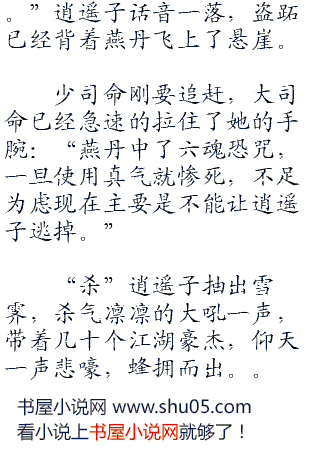 。”逍遥子话音一落，盗跖
已经背着燕丹飞上了悬崖。
少司命刚要追赶，大司
命已经急速的拉住了她的手
腕：“燕丹中了六魂恐咒，
一旦使用真气就惨死，不足
为虑现在主要是不能让逍遥
子逃掉。”
“杀”逍遥子抽出雪
霁，杀气凛凛的大吼一声，
带着几十个江湖豪杰，仰天
一声悲嚎，蜂拥而出。。
书屋小说网 www.shu05.com
看小说上书屋小说网就够了！